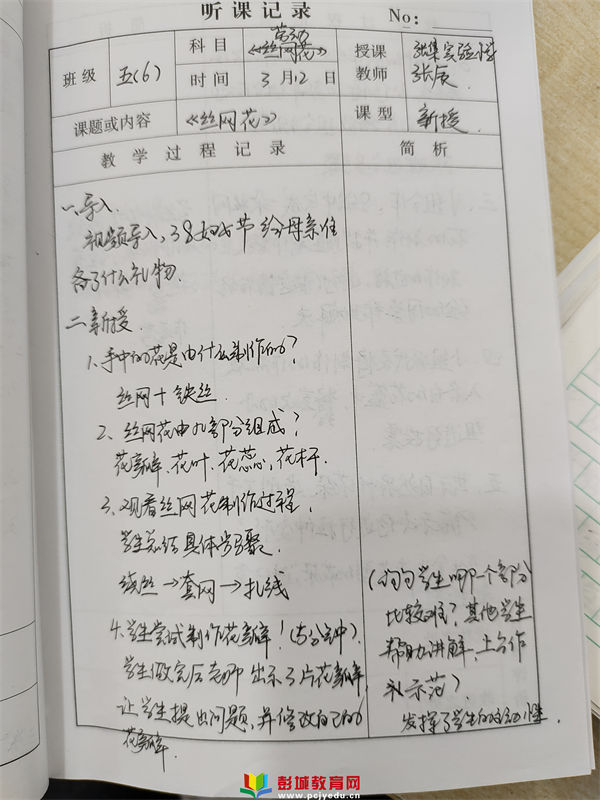 听课记录 No:
班级 五(6) 科目 劳动《丝网花》 授课教师 张集实验小学 张辰
时间 3月12日
课题或内容 《丝网花》 课型 新授
教学过程记录 简析
一、导入
视频导入,38妇女节给母亲准
备了什么礼物.
二、新授
1、手中的花是由什么制作的?
丝网+铁丝.
2、丝网花由几部分组成?
花瓣、花叶、花蕊、花杆.
3、观看丝网花制作过程,
学生总结具体步骤.
绕丝→套网→扎线
4.学生尝试制作花瓣!(5分钟).
学生做完后老师出示了片花瓣,
让学生提出问题,并修改自己的
花瓣.
(询问学生哪一个部分
比较难?其他学生
帮助讲解,上台作
示范)
发挥了学生的主动性.
彭城教育网
www.pcjyedu.cn